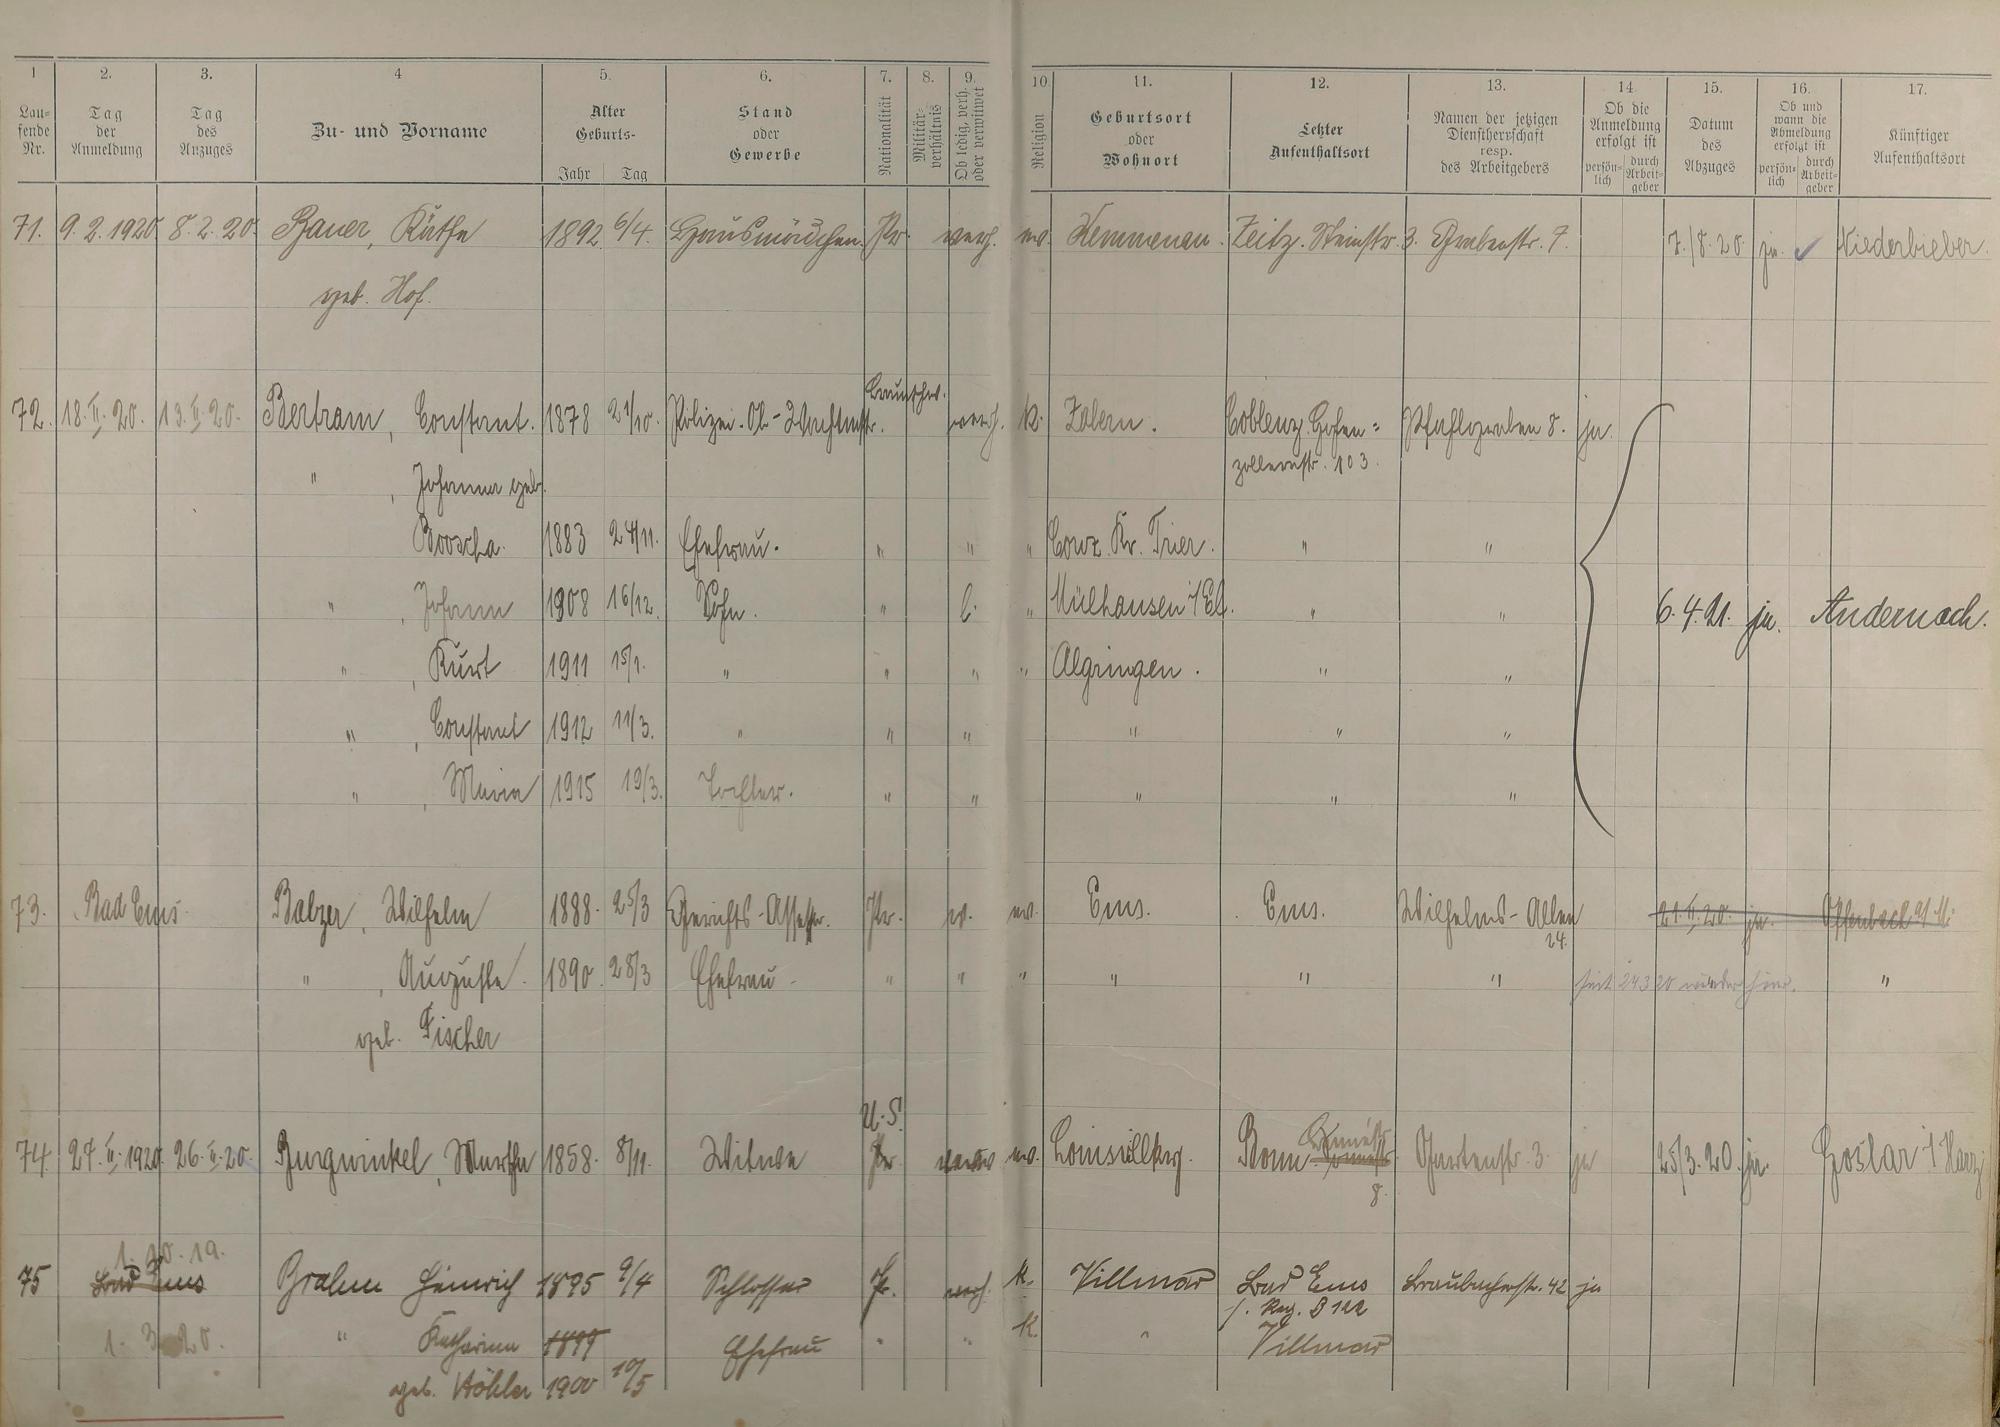 1 2. 3. 4 5. 6. 7. 8. 9. 10 11. 12. 13. 14. 15. 16. 17.
Lau-
fende
Nr.
Tag
der
Anmeldung
Tag
des
Anzuges
Zu- und Vorname
Alter
Geburts-
Jahr Tag
Stand
oder
Gewerbe
Nationalität
Militär-
verhältnis
Ob ledig, verh.
oder verwitwet
Religion
Geburtsort
oder
Wohnort
Letzter
Aufenthaltsort
Namen der jetzigen
Dienstherrschaft
resp.
des Arbeitgebers
Ob die
Anmeldung
erfolgt ist
persön-
lich
durch
Arbeit-
geber
Datum
des
Abzuges
Ob und
wann die
Abmeldung
erfolgt ist
persön-
lich
durch
Arbeit-
geber
Künftiger
Aufenthaltsort
71. 9.2.1920 8.2.20. Bauer, Käthe 1892 6/4. Hausmädchen. Pr. verh. ev. Kemmenau. Zeitz. Steinstr. 3. Grabenstr. 7. 7./8.20 ja. ✓ Niederbieber.
geb. Hof.
Braunschw.
72. 18.II.20. 13.II.20. Bertram, Constant. 1878 21/10. Polizei-Ob-Wachtmstr. verh. K. Zabern. Coblenz. Hohen= Pfahlgraben 8. ja.
zollernstr. 103.
" , Johanna geb.
Booscha. 1883 24/11. Ehefrau. " " " Conz. Kr. Trier. " "
" , Johann 1908 16/12. Sohn. " l. " Mülhausen i/El. " " 6.4.21. ja. Andernach.
" , Kurt 1911 15/1. " " " " Algringen. " "
" , Constant 1912 11/3. " " " " " "
" , Maria 1915 19/3. Tochter. " " " " "
73. Bad Ems. Balzer, Wilhelm 1888. 25/3 Gerichts-Assessor. Pr. v. ev. Ems. Ems. Wilhelms-Allee 21.II.20. ja. Offenbach a/M.
24.
" , Auguste. 1890. 28/3 Ehefrau " " " " " " seit 24 3 20 wieder hier. "
geb. Fischer
U.S.
74. 27.II.1920. 26.II.20. Burgwinkel, Martha 1858. 8/11. Witwe Pr. verw ev. Louisville Ky. Bonn Gartenstr. 3. ja 25/3.20. ja. Goslar i/Harz
8.
1.10.19.
75 Bad Ems Brahm Heinrich 1895 9/4 Schlosser Pr. verh. K. Villmar Bad Ems Braubacherstr. 42 ja
f. Reg. B 122
1.3.20. " Katharina 1899 Ehefrau " " K. " Villmar
geb. Höhler 1900 10/5